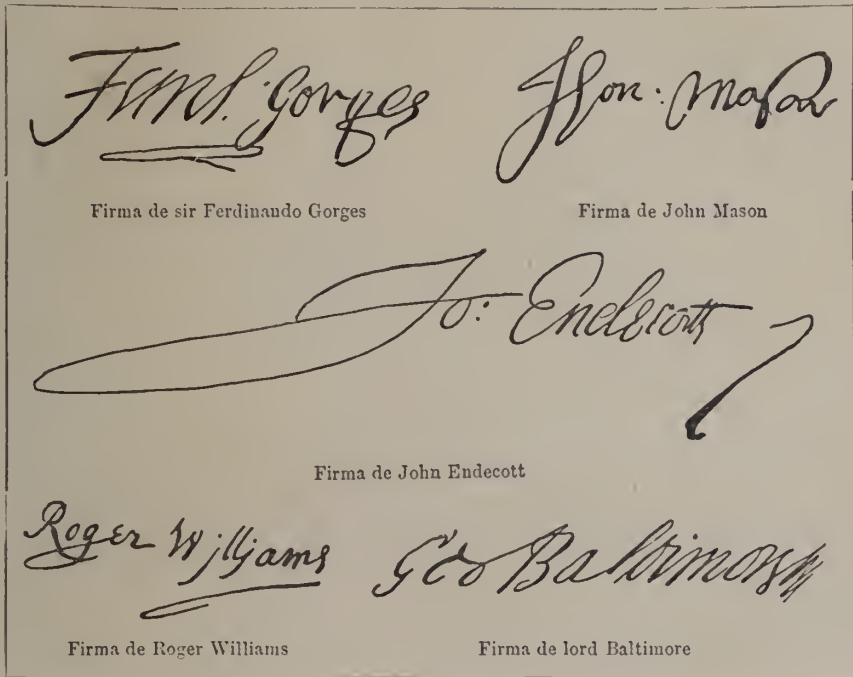 Ferd. Gorges
Jhon: Mason
Firma de sir Ferdinando Gorges
Firma de John Mason
Jo: Endecott
Firma de John Endecott
Roger Williams
Geo Baltimore
Firma de Roger Williams
Firma de lord Baltimore